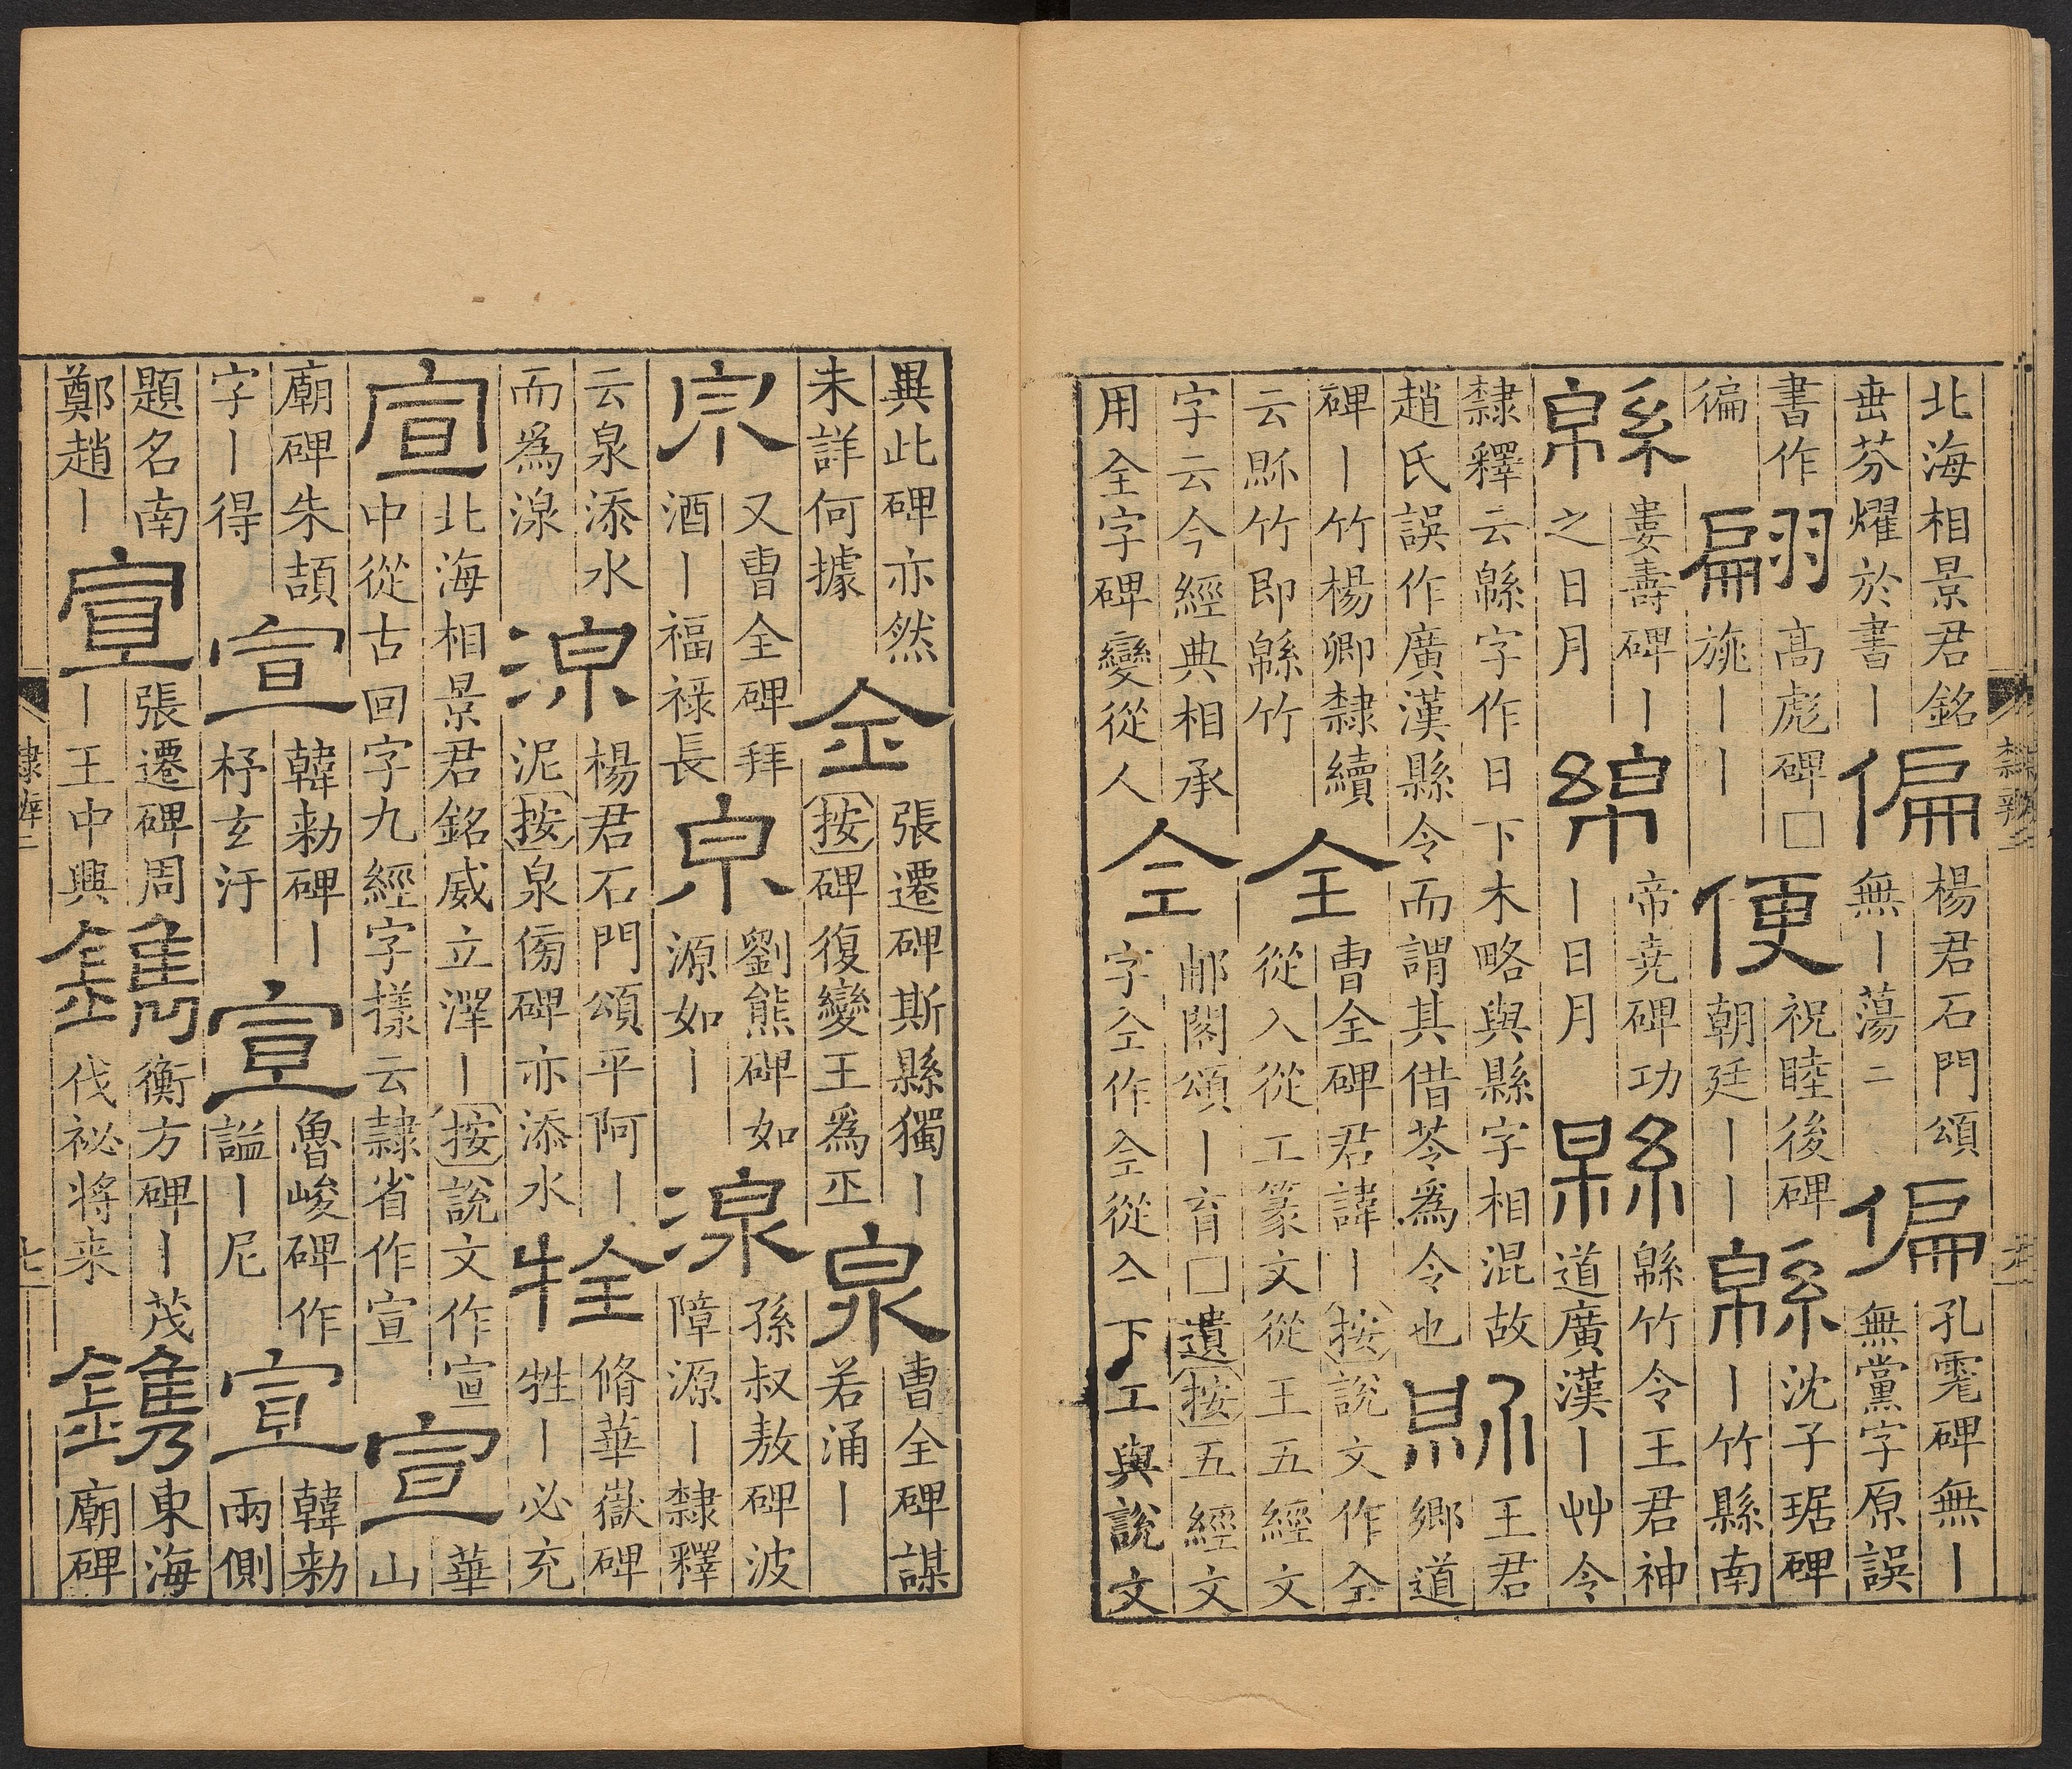 北海相景君銘垂芬燿於書丨偏楊君石門頌無丨蕩二偏孔霔碑無丨無黨字原誤
書作徧翩高彪碑□旐丨丨便祝睦後碑朝廷丨丨緜沈子琚碑丨竹縣南
緜婁壽碑丨之日月綿帝堯碑功丨日月緜緜竹令王君神道廣漢丨艸令
隸釋云緜字作日下木略與縣字相混故趙氏誤作廣漢縣令而謂其借苓爲令也縣王君鄉道
碑丨竹楊卿隸續云縣竹即緜竹全曹全碑君諱丨按說文作仝從入從工篆文從王五經文
字云今經典相承用全字碑變從人仝郙閣頌丨育□遺按五經文字仝作仝從亼下工與說文
隸辨二
異此碑亦然未詳何據金張遷碑斯縣獨丨按碑復變王爲正泉曹全碑謀若涌丨
泉又曹全碑拜酒丨福祿長泉劉熊碑如源如丨湶孫叔敖碑波障源丨隸釋
云泉添水而爲湶湶楊君石門頌平阿丨泥按泉傷碑亦添水牷脩華嶽碑牲丨必充
宣北海相景君銘威立澤丨按說文作宣中從古回字九經字㨾云隸省作宣宣華山
廟碑朱頡字丨得宣韓勑碑丨杼玄汙宣魯峻碑作謚丨尼宣韓勑兩側
題名南鄭趙丨宣張遷碑周丨王中興鐫衡方碑丨茂伐祕將来鐫東海廟碑
隸辨二